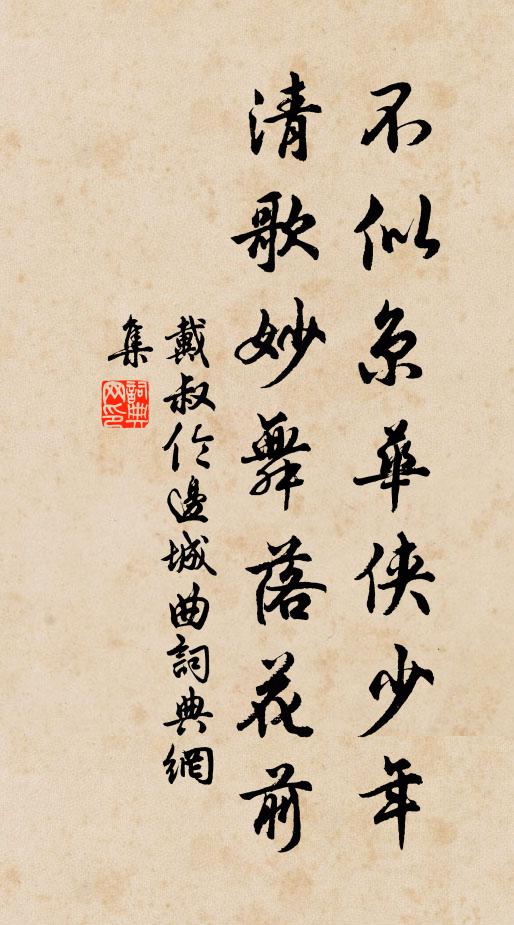 不似京華俠少年
清歌妙舞落花前
戴叔伦邊城曲詞典網
集
詞典
网印